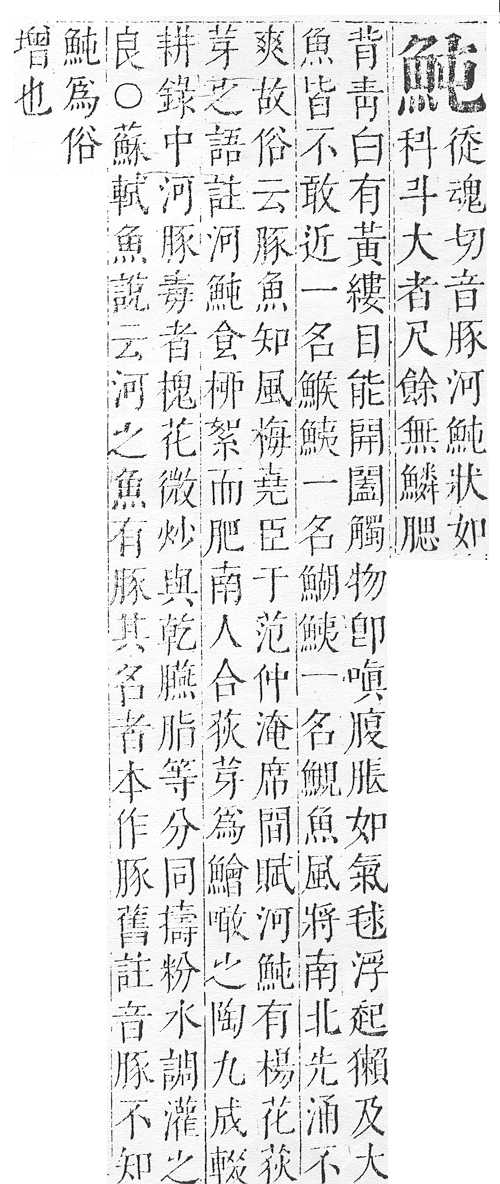 魨
徒魂切音豚河魨狀如
科斗大者尺餘無鱗腮
背靑白有黃縷目能開闔觸物卽嗔腹脹如氣毬浮起獺及大
魚皆不敢近一名鯸鮧一名鰗鮧一名鯢魚風將南北先涌不
爽故俗云豚魚知風梅堯臣于范仲淹席閒賦河魨有楊花荻
芽之語註河魨食柳絮而肥南人合荻芽爲鱠噉之陶九成輟
耕錄中河豚毒者槐花微炒與乾臙脂等分同擣粉水調灌之
良○蘇軾魚說云河之魚有豚其名者本作豚舊註音豚不知
魨爲俗
增也